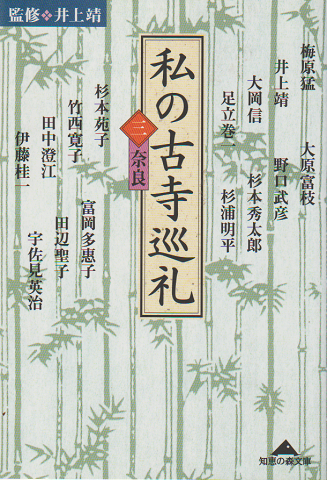 監修❖井上靖
私の古寺巡礼
三 奈良
梅原猛
大原富枝
井上靖
野口武彦
大岡信
杉本秀太郎
足立巻一
杉浦明平
杉本苑子
富岡多惠子
竹西寛子
田辺聖子
田中澄江
宇佐見英治
伊藤桂一
知恵の森文庫